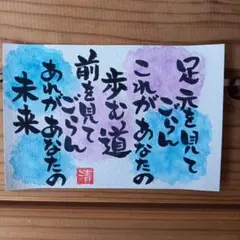 足元を見て
ごらん
これがあなたの
歩む道
前を見て
ごらん
あれがあなたの
未来
清